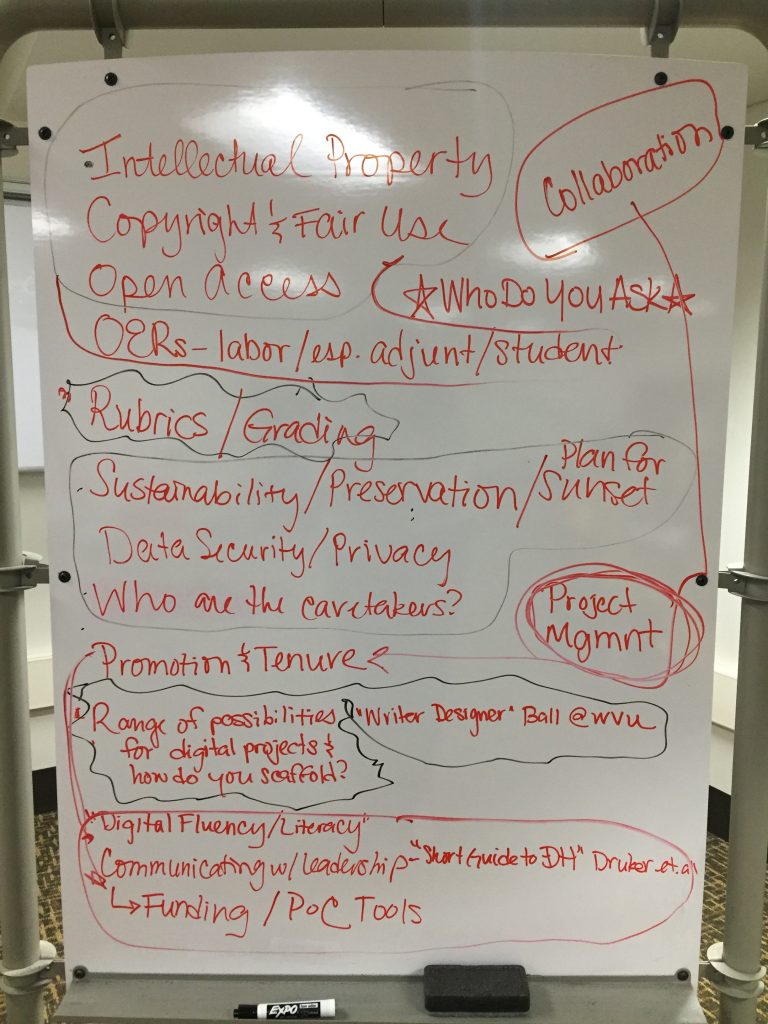 Intellectual Property
Collaboration
Copyright & Fair Use
Open Access
☆Who Do You Ask☆
OERs - labor/esp. adjunt/student
Rubrics / Grading
Sustainability/Preservation/Plan for Sunset
Data Security/Privacy
Who are the caretakers?
Project
Mgmnt
Promotion & Tenure
Range of possibilities
for digital projects &
how do you scaffold?
"Writer Designer" Ball @ WVU
"Digital Fluency/Literacy"
Communicating w/ leadership - "Short Guide to DH" Druker et.al
↳ Funding / PoC Tools
EXPO